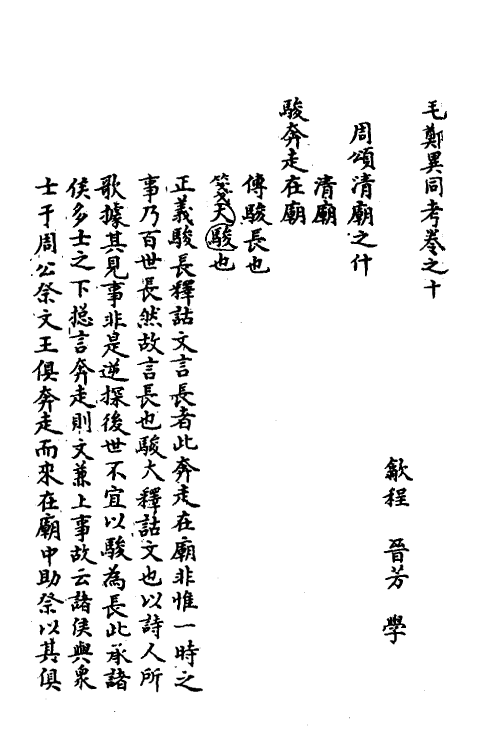 毛鄭異同考卷之十
歙程 晉芳 學
周頌清廟之什
清廟
駿奔走在廟
傳駿長也
箋大駿也
正義駿長釋詁文言長者此奔走在廟非惟一時之
事乃百世長然故言長也駿大釋詁文也以詩人所
歌據其見事非是逆探後世不宜以駿為長此承諸
侯多士之下總言奔走則文兼上事故云諸侯與衆
士于周公祭文王俱奔走而來在廟中助祭以其俱